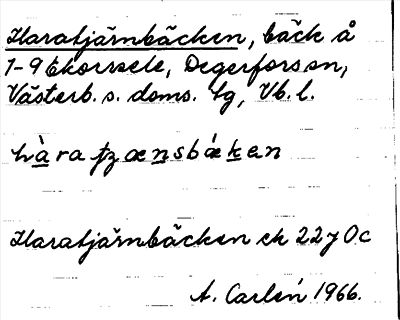 Haratjärnbäcken, bäck å
1-9 Ekorrsele, Degerfors sn,
Västerb. s. doms. lg, Vb. l.
hàra tjænsbǽken
Haratjärnbäcken ek 22 j 0c
A. Carlén 1966.